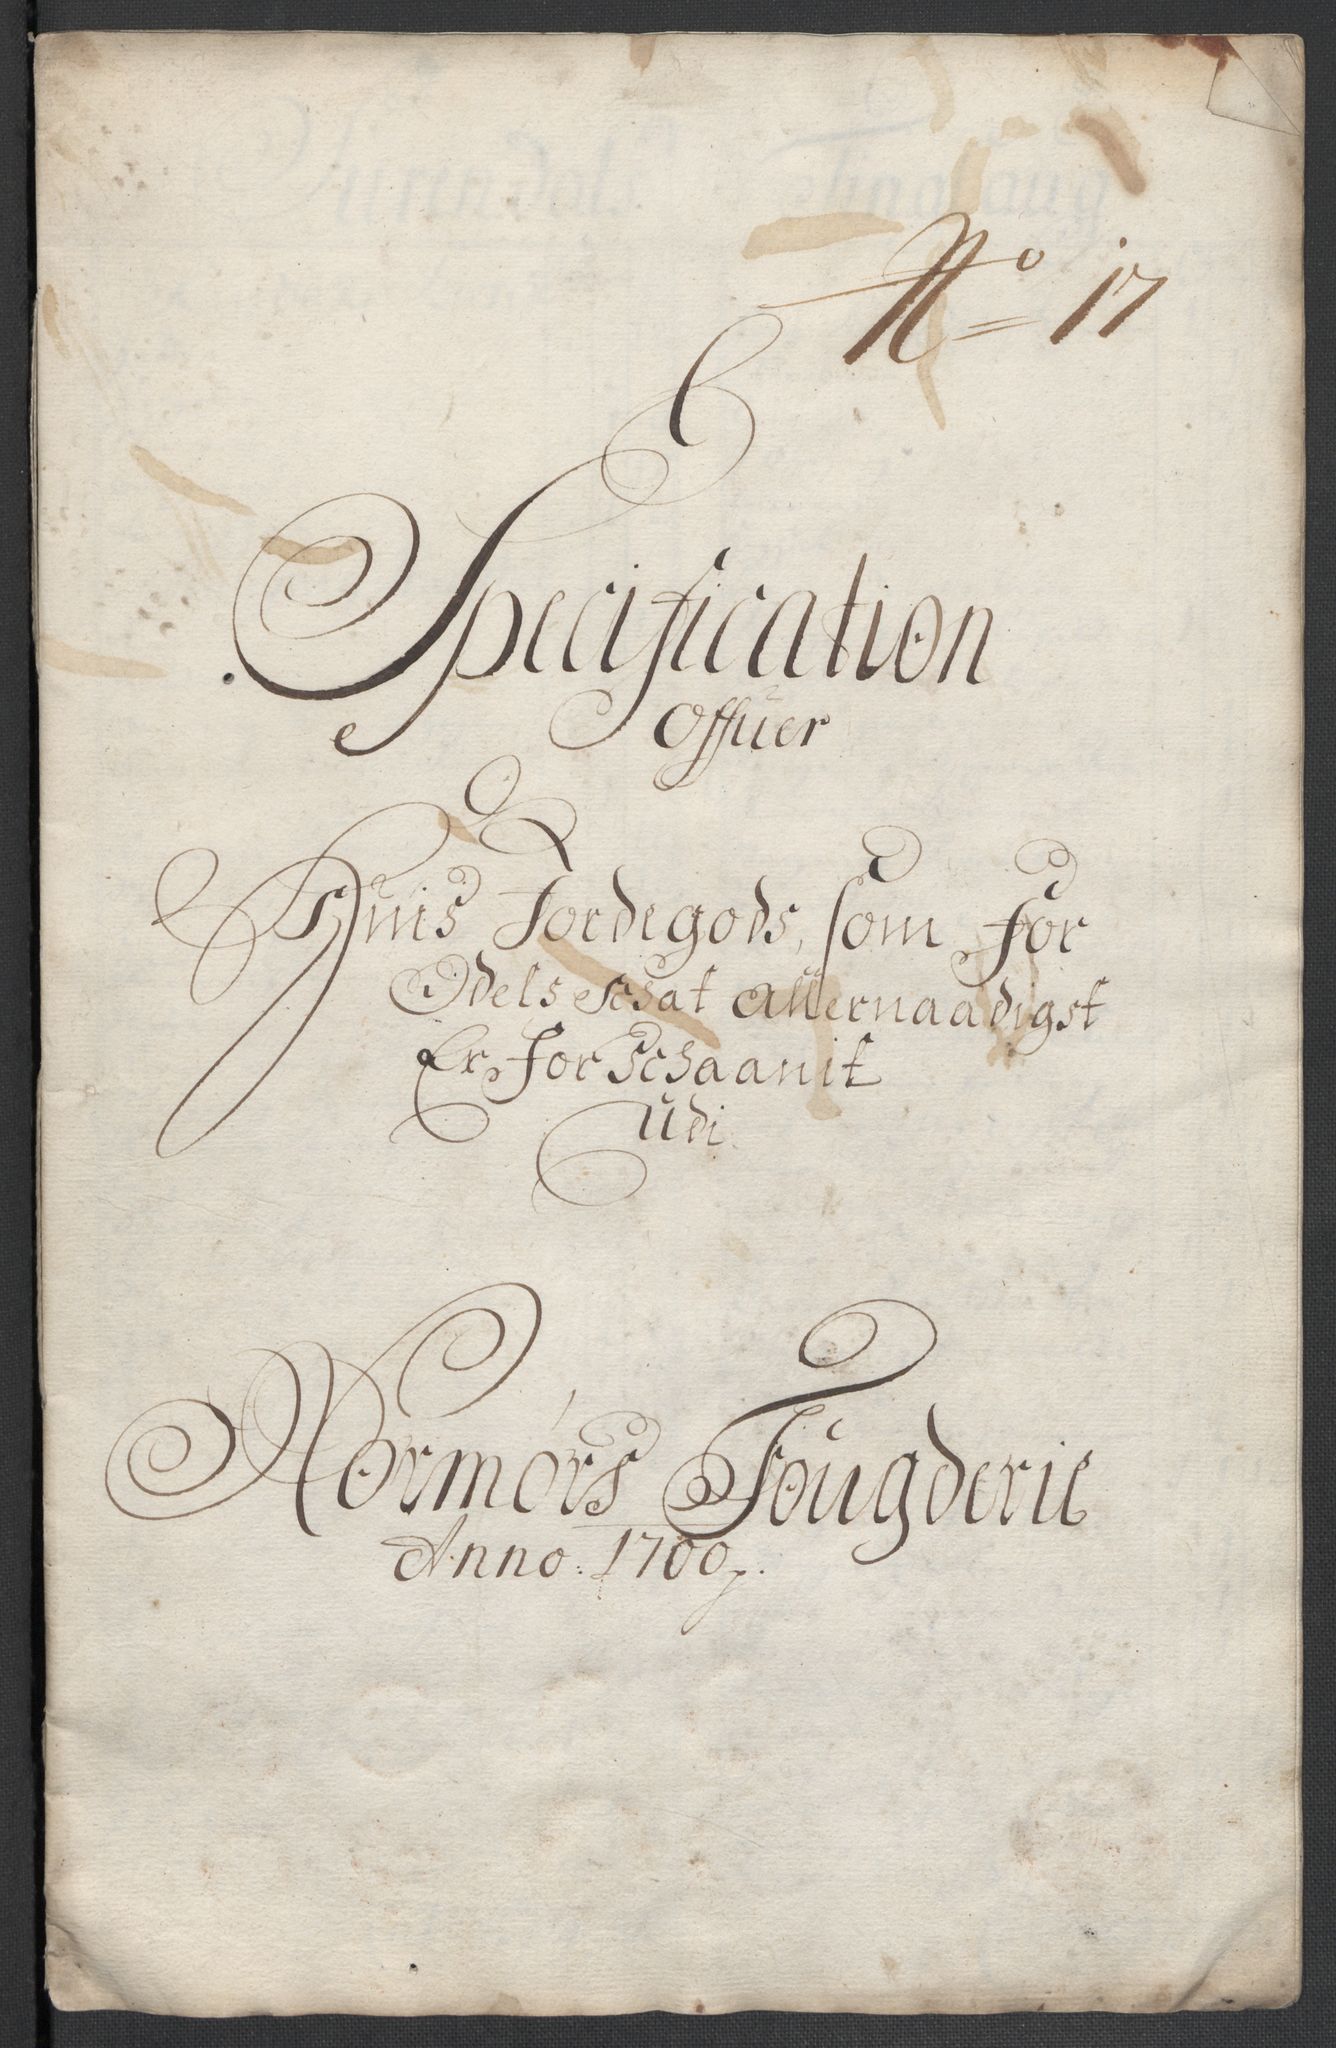 No 17
Specification
Offuer
Huis Jordegods, som for
Odels schat allernaadigst
Er forschaanit
udi
Normørs Fougderie
Anno. 1700